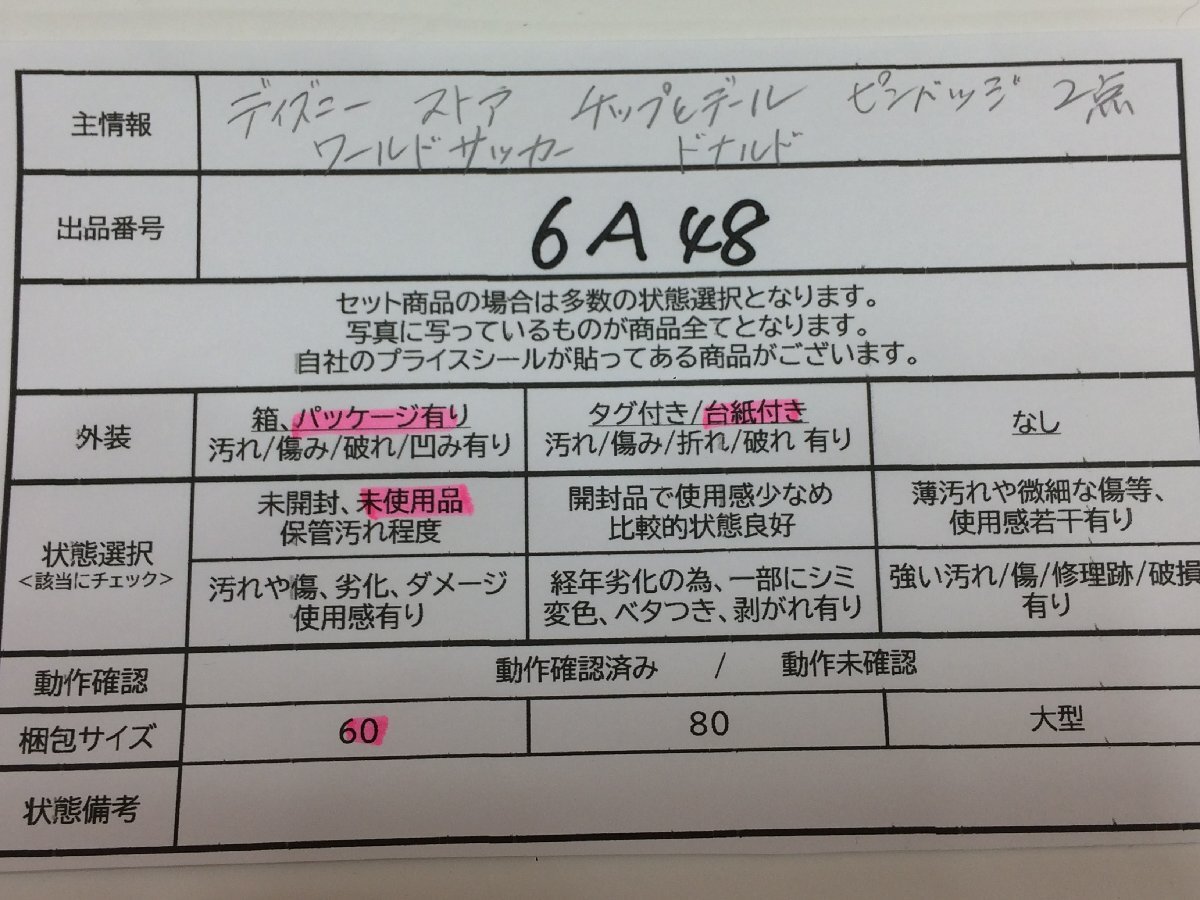 主情報
ディズニー ストア チップとデール ピンバッジ 2点
ワールドサッカー ドナルド
出品番号
6A48
セット商品の場合は多数の状態選択となります。
写真に写っているものが商品全てとなります。
自社のプライスシールが貼ってある商品がございます。
外装
箱、パッケージ有り
汚れ/傷み/破れ/凹み有り
タグ付き/台紙付き
汚れ/傷み/折れ/破れ 有り
なし
状態選択
<該当にチェック>
未開封、未使用品
保管汚れ程度
開封品で使用感少なめ
比較的状態良好
薄汚れや微細な傷等、
使用感若干有り
汚れや傷、劣化、ダメージ
使用感有り
経年劣化の為、一部にシミ
変色、ベタつき、剥がれ有り
強い汚れ/傷/修理跡/破損
有り
動作確認
動作確認済み / 動作未確認
梱包サイズ
60
80
大型
状態備考